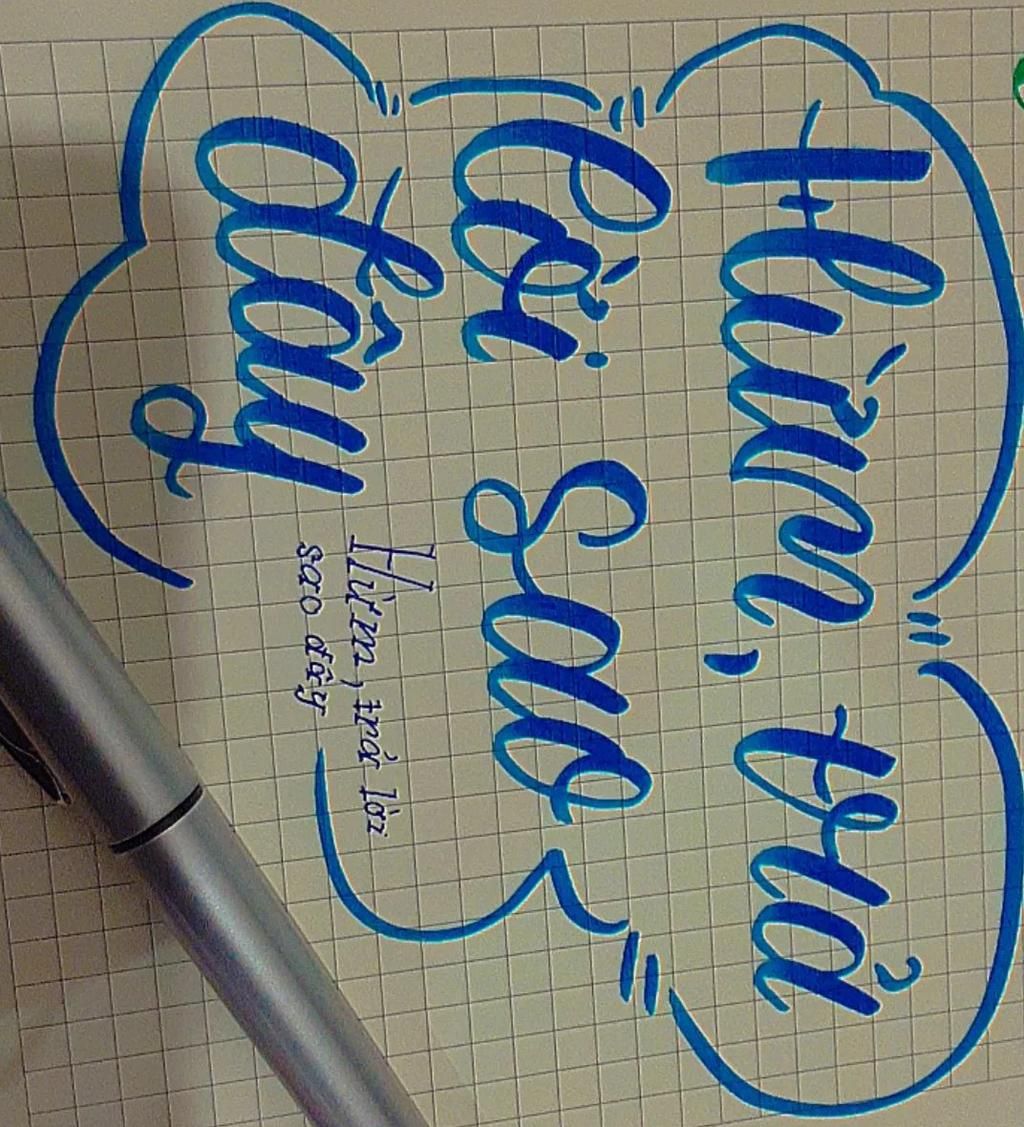 Hừm, trả
lời sao
đây
Hừm, trả lời
sao đây